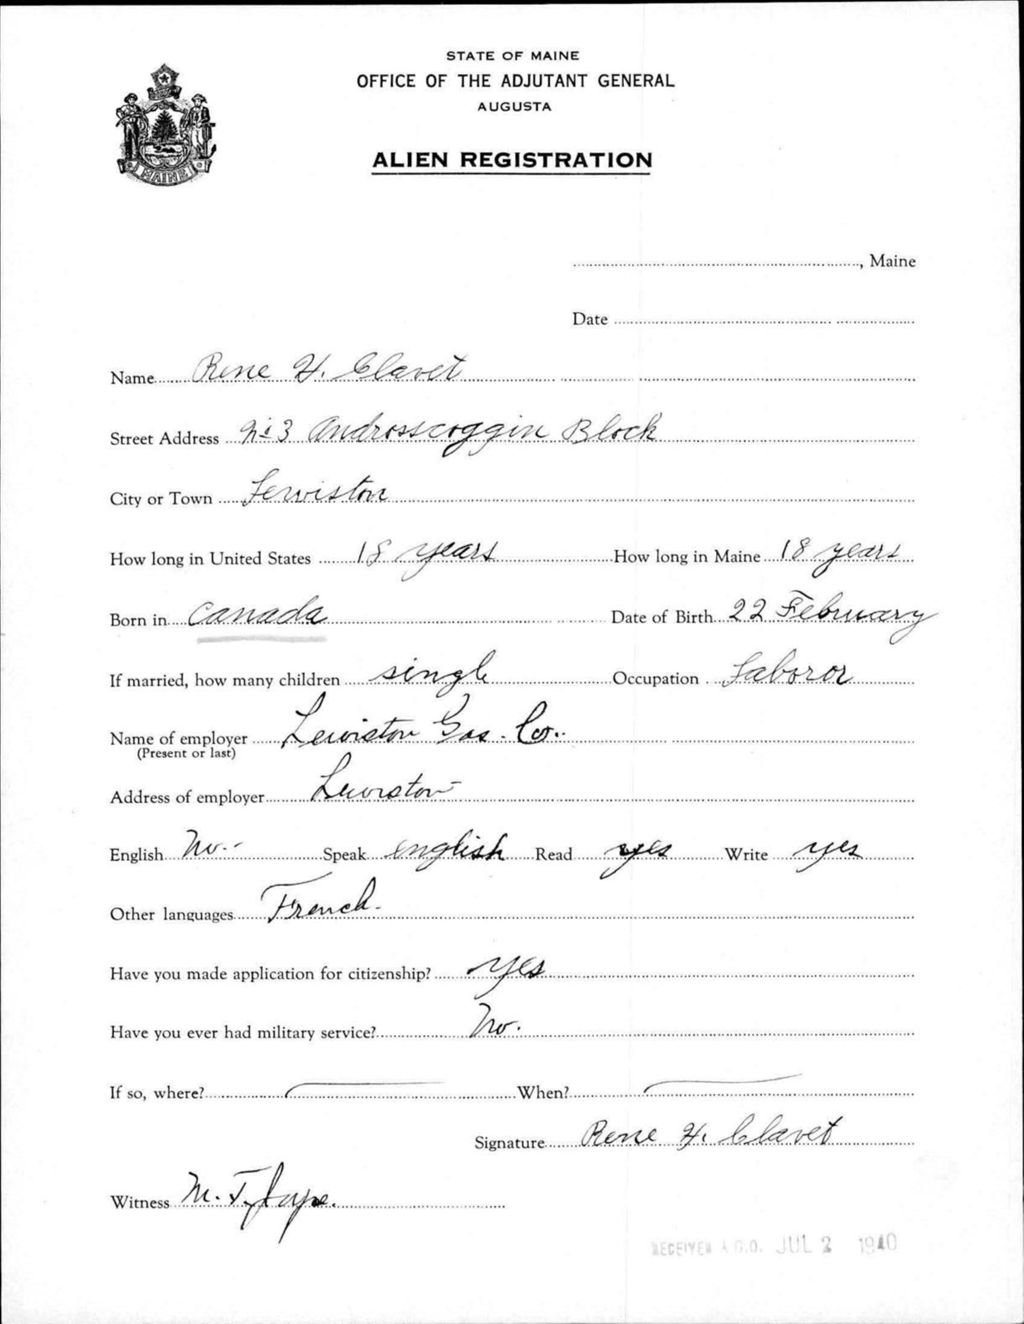 STATE OF MAINE
OFFICE OF THE ADJUTANT GENERAL
AUGUSTA
ALIEN REGISTRATION
MAINE
, Maine
Date
Name Rene H. Clavet
Street Address No 3 Androsscoggin Block
City or Town Lewiston
How long in United States 18 years How long in Maine 18 years
Born in Canada Date of Birth 22 February
If married, how many children single Occupation Laboror
Name of employer Lewiston Gas. Co.
(Present or last)
Address of employer Lewiston
English No. Speak english Read yes Write yes
Other languages French
Have you made application for citizenship? yes
Have you ever had military service? No.
If so, where? When?
Signature Rene H. Clavet
Witness M. T.
RECEIVED A.G.O. JUL 2 1940